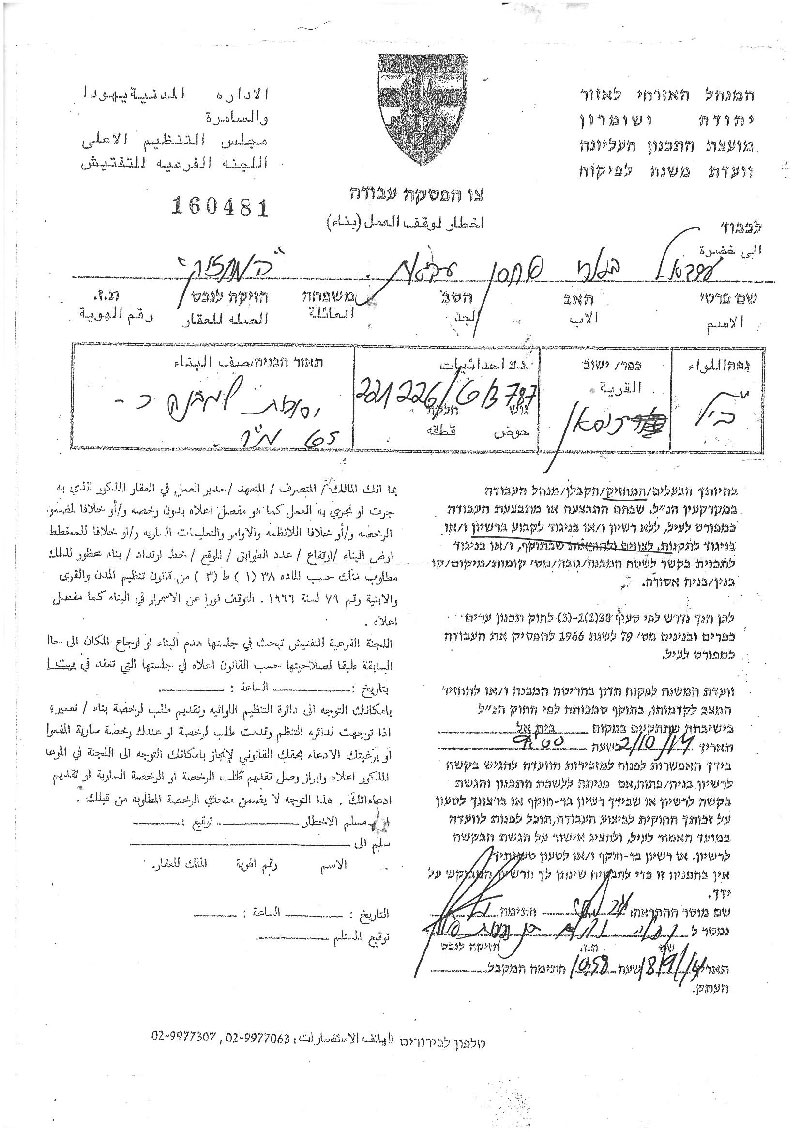 המנהל האזרחי לאזור
יהודה ושומרון
מועצת התכנון העליונה
וועדת משנה לפיקוח
الاداره المدنية يهودا
والسامرة
مجلس التنظيم الاعلى
اللجنه الفرعيه للتفتيش
160481
צו הפסקה עבודה
اخطار لوقف العمل (بناء)
לכבוד
الى حضرة
"המחזיק"
שם פרטי האב הסב משפחה הזיקה לנכס ת.ז.
الاسم الاب الجد العائلة الصله للعقار رقم الهوية
נפה/اللواء
כפר/ ישוב
القرية
נ.צ احداثيات
221226/613787
גוש חלקה
حوض قطعه
תאור הבניה/صنف البناء
יסודות למבנה כ-
65 מ"ר
בהיותך הבעלים/המחזיק/הקבלן/מנהל העבודה
במקרקעין הנ"ל, שבהם התבצעה או מתבצעת העבודה
כמפורט לעיל, ללא רשיון ו/או בניגוד לקבוע ברשיון ו/או
בניגוד לתקנות, לצווים ולהוראות שבתוקף, ו/או בניגוד
לתכנית בקשר לשטח המבנה/גובה/מס' קומות/מיקום/קו
בנין/בניה אסורה.
לכן הנך נדרש לפי סעיף 38(2)-(3) לחוק תכנון ערים
כפרים ובנינים מס' 79 לשנת 1966 להפסיק את העבודה
כמפורט לעיל.
וועדת המשנה לפקוח תדון בהריסת המבנה ו/או להחזיר
המצב לקדמותו, בתוקף סמכותה לפי החוק הנ"ל
בישיבתה שתתקיים במקום בית אל
תאריך 2/10/14 שעה 9:00
בידך האפשרות לפנות למזכירות הוועדה להגיש בקשה
לרשיון בניה/פתוח, אם פנית ללשכת התכנון והגשת
בקשה לרשיון או שבידך רשיון בר-תוקף או ברצונך לטעון
על זכותך החוקית לביצוע העבודה, תוכל לפנות לוועדה
במועד האמור לעיל, ולהציג אישור על הגשת הבקשה
לרשיון, או רשיון בר-תוקף ו/או לטעון טענותיך
אין בהפניה זו כדי להבטיח שינתן לך הרשיון המבוקש על
ידך.
שם מוסר ההתראה: חתימה
נמסר ל
שם ת.ז. הזיקה לנכס
תאריך 18/9/14 שעה 10:58 חתימת המקבל
העתק.
بما انك المالك / المتصرف / المتعهد / مدير العمل في العقار المذكور الذي به
جرت او تجري به العمل كما هو مفصل اعلاه بدون رخصه و/أو خلافا لمضمون
الرخصه و/أو خلافا للانظمه والاوامر والتعليمات الساريه و/أو خلافا للمخطط
ارض البناء / ارتفاع / عدد الطوابق / الموقع / خط ارتداد / بناء محظور لذلك
مطلوب منك حسب الماده ٣٨ (١) ط (٣) من قانون تنظيم المدن والقرى
والابنية رقم ٧٩ لسنة ١٩٦٦ . التوقف فورا عن الاسمرار في البناء كما مفصل
اعلاه
اللجنة الفرعية للتفتيش تبحث في جلستها هدم البناء او ارجاع المكان الى حالته
السابقة طبقا لصلاحيتها حسب القانون اعلاه في جلستها التي تعقد في بيت ا
بتاريخ : الساعة :
بامكانك التوجه الى دائرة التنظيم اللوائيه وتقديم طلب لرخصة بناء / تعميره
اذا توجهت لدائره التنظم وقدمت طلب لرخصة او عندك رخصة سارية المفعول
او برغبتك الادعاء بحقك القانوني لإنجاز بامكانك التوجه الى اللجنة في الموعد
المذكور اعلاه وابراز وصل تقديم طلب الرخصة او الرخصة السارية او تقديم
ادعاءاتك . هذا التوجه لا يضمن منحك الرخصة المطلوبه من قبلك .
اسم مسلم الاخطار : توقيع :
سلم الى
الاسم رقم الهوية المالك للعقار.
التاريخ : الساعة :
توقيع المستلم
טלפון לבירורים هاتف الاستفسارات: 02-9977063 , 02-9977307